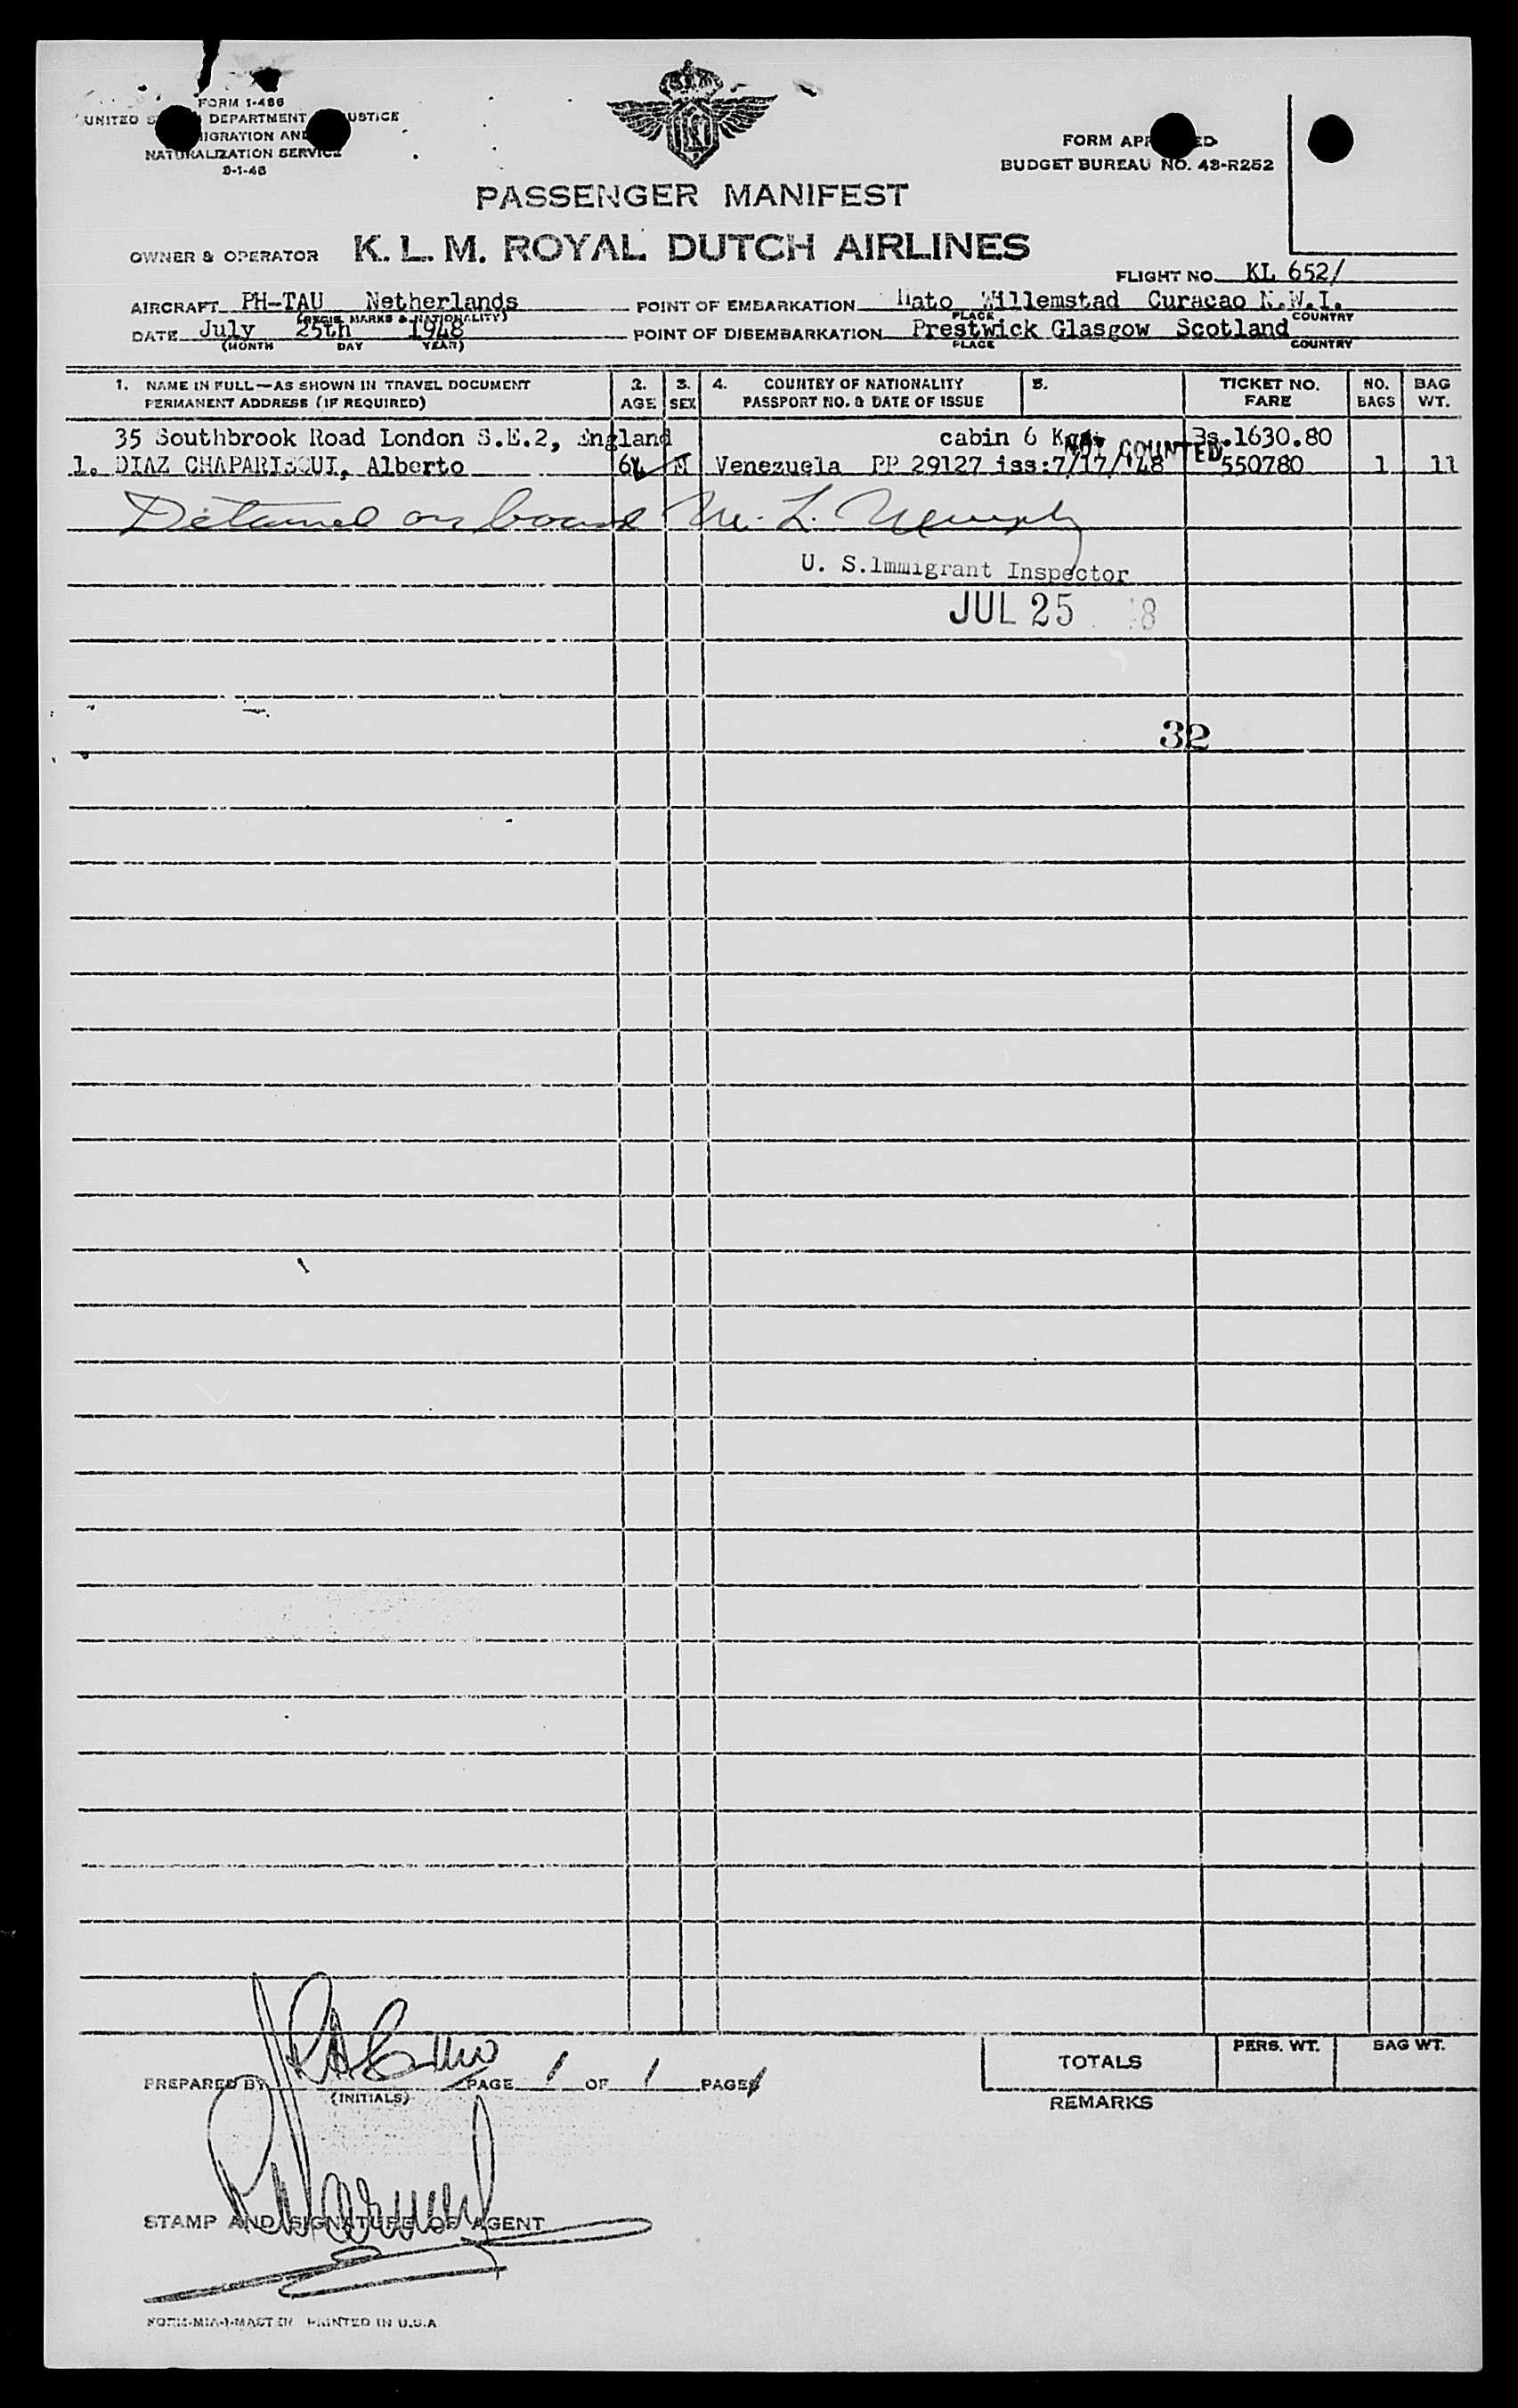 FORM I-466
UNITED DEPARTMENT USTICE
IGRATION AND
NATURALIZATION SERVICE
FORM APP ED
BUDGET BUREAU NO. 43-R252
PASSENGER MANIFEST
OWNER & OPERATOR K. L. M. ROYAL DUTCH AIRLINES
FLIGHT NO. KL 652/
AIRCRAFT PH-TAU Netherlands POINT OF EMBARKATION Hato Willemstad Curacao N.W.I.
(REGIS. MARKS & NATIONALITY) PLACE COUNTRY
DATE July 25th 1948 POINT OF DISEMBARKATION Prestwick Glasgow Scotland
(MONTH DAY YEAR) PLACE COUNTRY
1. NAME IN FULL—AS SHOWN IN TRAVEL DOCUMENT 2. 3. 4. COUNTRY OF NATIONALITY 5. TICKET NO. NO. BAG
PERMANENT ADDRESS (IF REQUIRED) AGE SEX PASSPORT NO. & DATE OF ISSUE FARE BAGS WT.
35 Southbrook Road London S.E.2, England cabin 6 Kgs. Bs.1630.80
NOT COUNTED
1. DIAZ Alberto M Venezuela PP 29127 iss:7/17/'48 550780 1 11
Detained on board M. L.
U. S. Immigrant Inspector
JUL 25 8
32
PREPARED BY PAGE 1 OF 1 PAGES
(INITIALS)
TOTALS PERS. WT. BAG WT.
REMARKS
STAMP AND SIGNATURE OF AGENT
PRINTED IN U.S.A